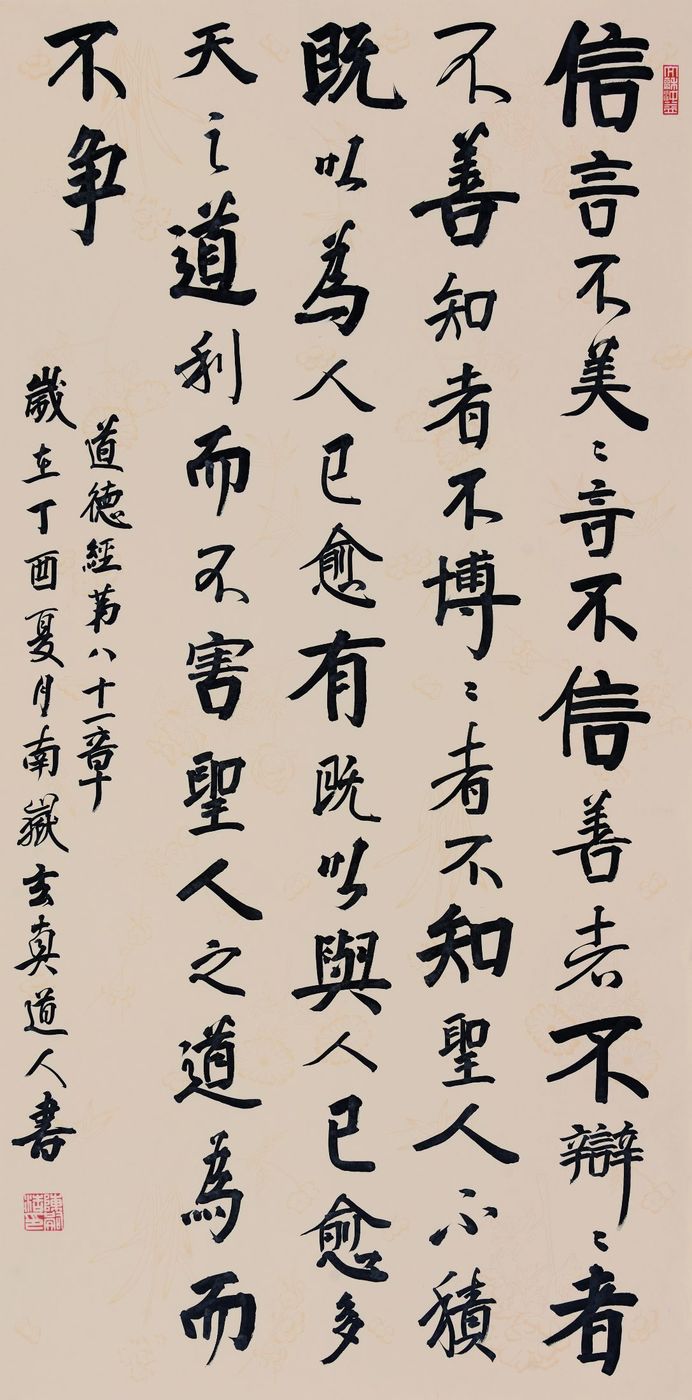 信言不美〻言不信善者不辯〻者
不善知者不博〻者不知聖人不積
既以為人已愈有既以與人已愈多
天之道利而不害聖人之道為而
不争
道德經第八十一章
歲在丁酉夏月南嶽玄真道人書